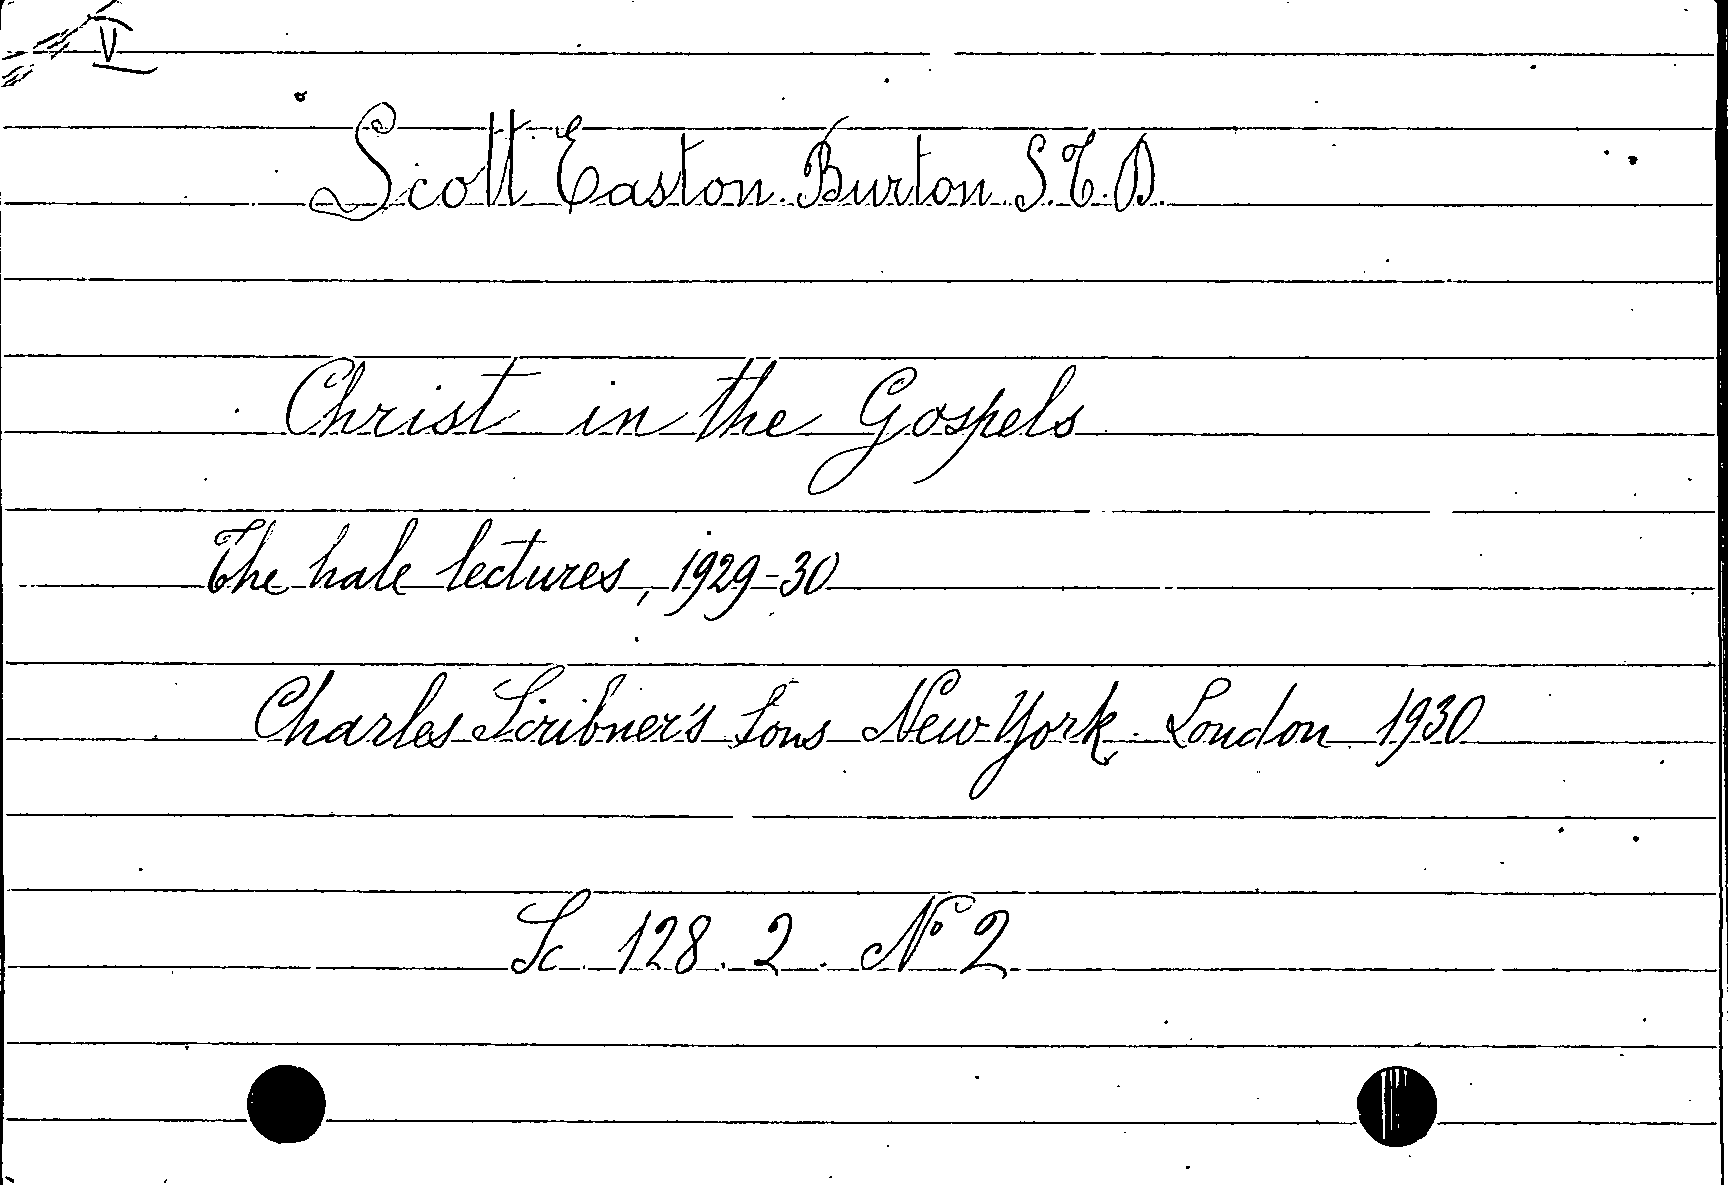 V
Scott Easton Burton S.T.D.
Christ in the Gospels
The hale lectures, 1929-30
Charles Scribner's Sons New York London 1930
Sc. 128. 2. Nº 2